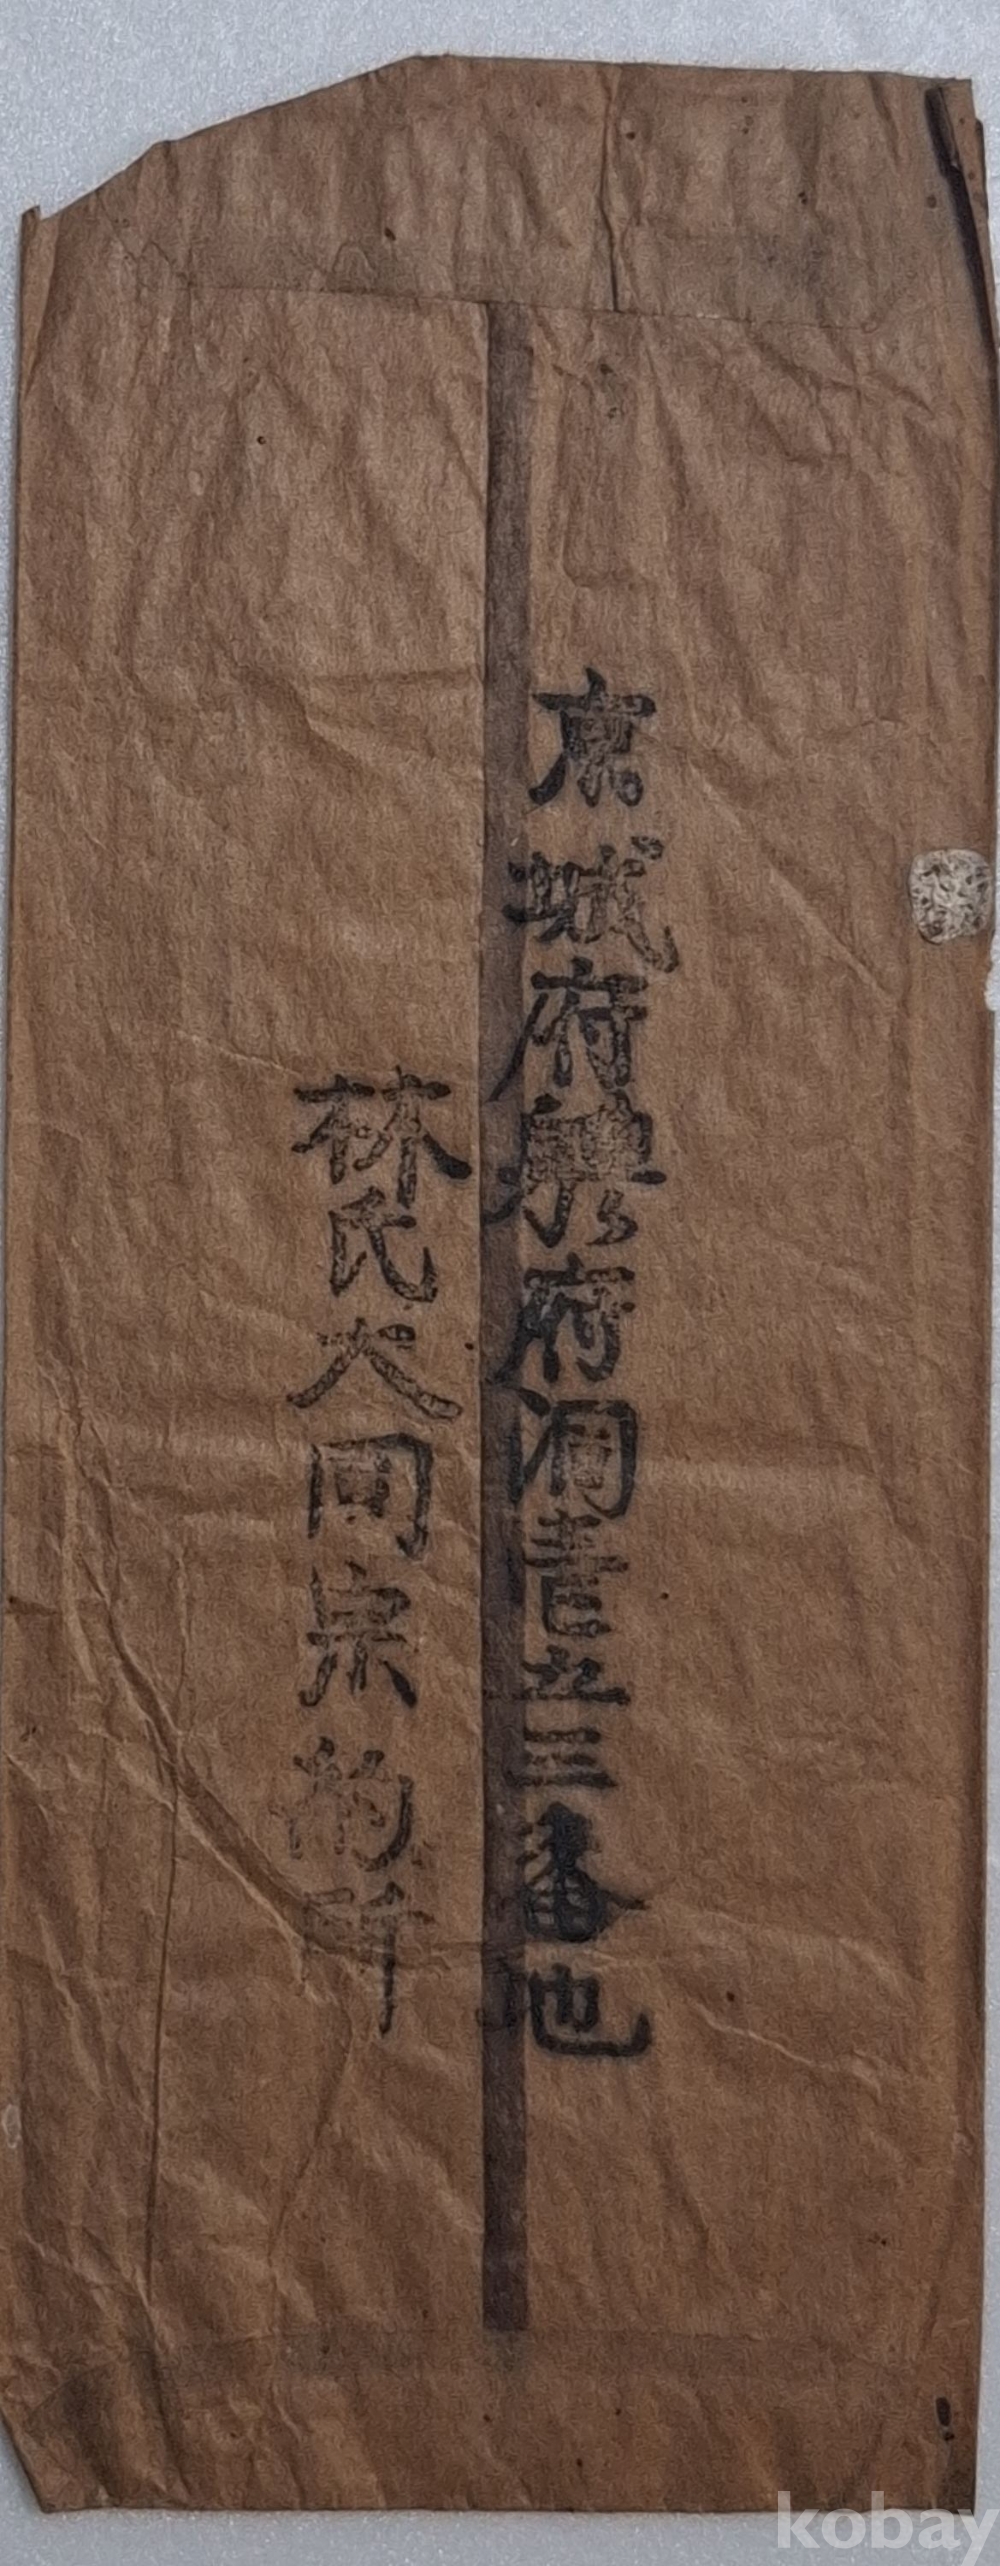 京城府軆府洞壹五三番地
林氏大同宗約所
kobay